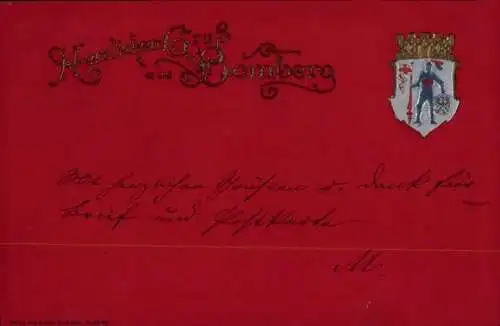 Herzlichen Gruß
aus Bamberg
Mit herzlichen Grüßen u. Dank für
Brief und Postkarte
M.